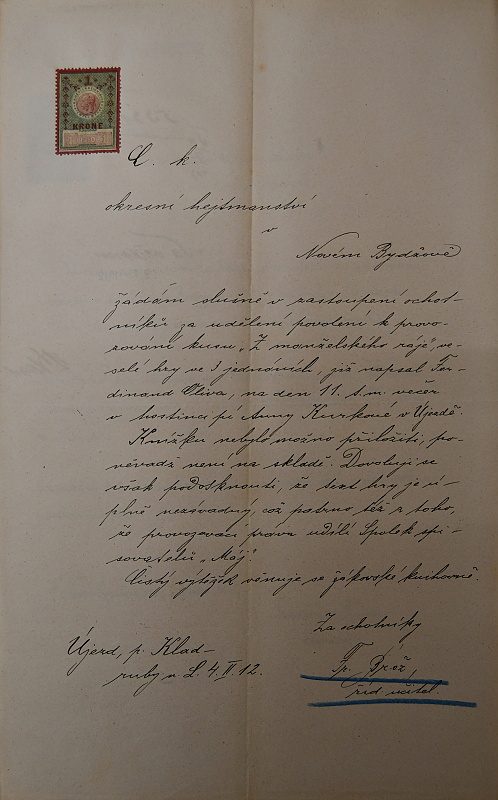 1
KRONE
C. k.
okresní hejtmanství
v
Novém Bydžově
žádám slušně v zastoupení ochot-
níků za udělení povolení k provo-
zování kusu „Z manželského ráje“, ve-
selé hry ve 3 jednáních, již napsal Fer-
dinand Oliva, na den 11. t. m. večer
v hostinci pí Anny Kurkové v Újezdě.
Knížku nebylo možno přiložiti, po-
něvadž není na skladě. Dovoluji si
však podotknouti, že text hry je ú-
plně nezávadný, což patrno též z toho,
že provozovací práva udílí Spolek spi-
sovatelů „Máj“.
Čistý výtěžek věnuje se žákovské knihovně.
Za ochotníky
Újezd, p. Klad-
ruby n. L. 4. II. 12.
Fr. Brož,
říd. učitel.